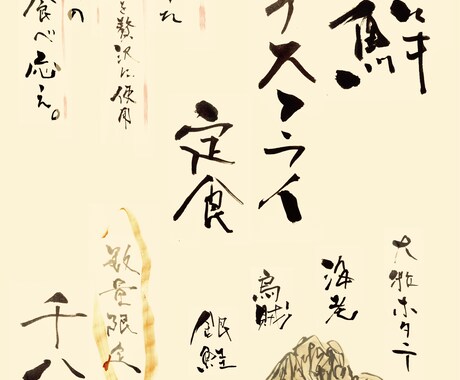 鮮
スフライ
定食
れ
を贅沢に使用
の
食べ応え。
大粒ホタテ
海老
烏賊
銀鮭
数量限定
千八